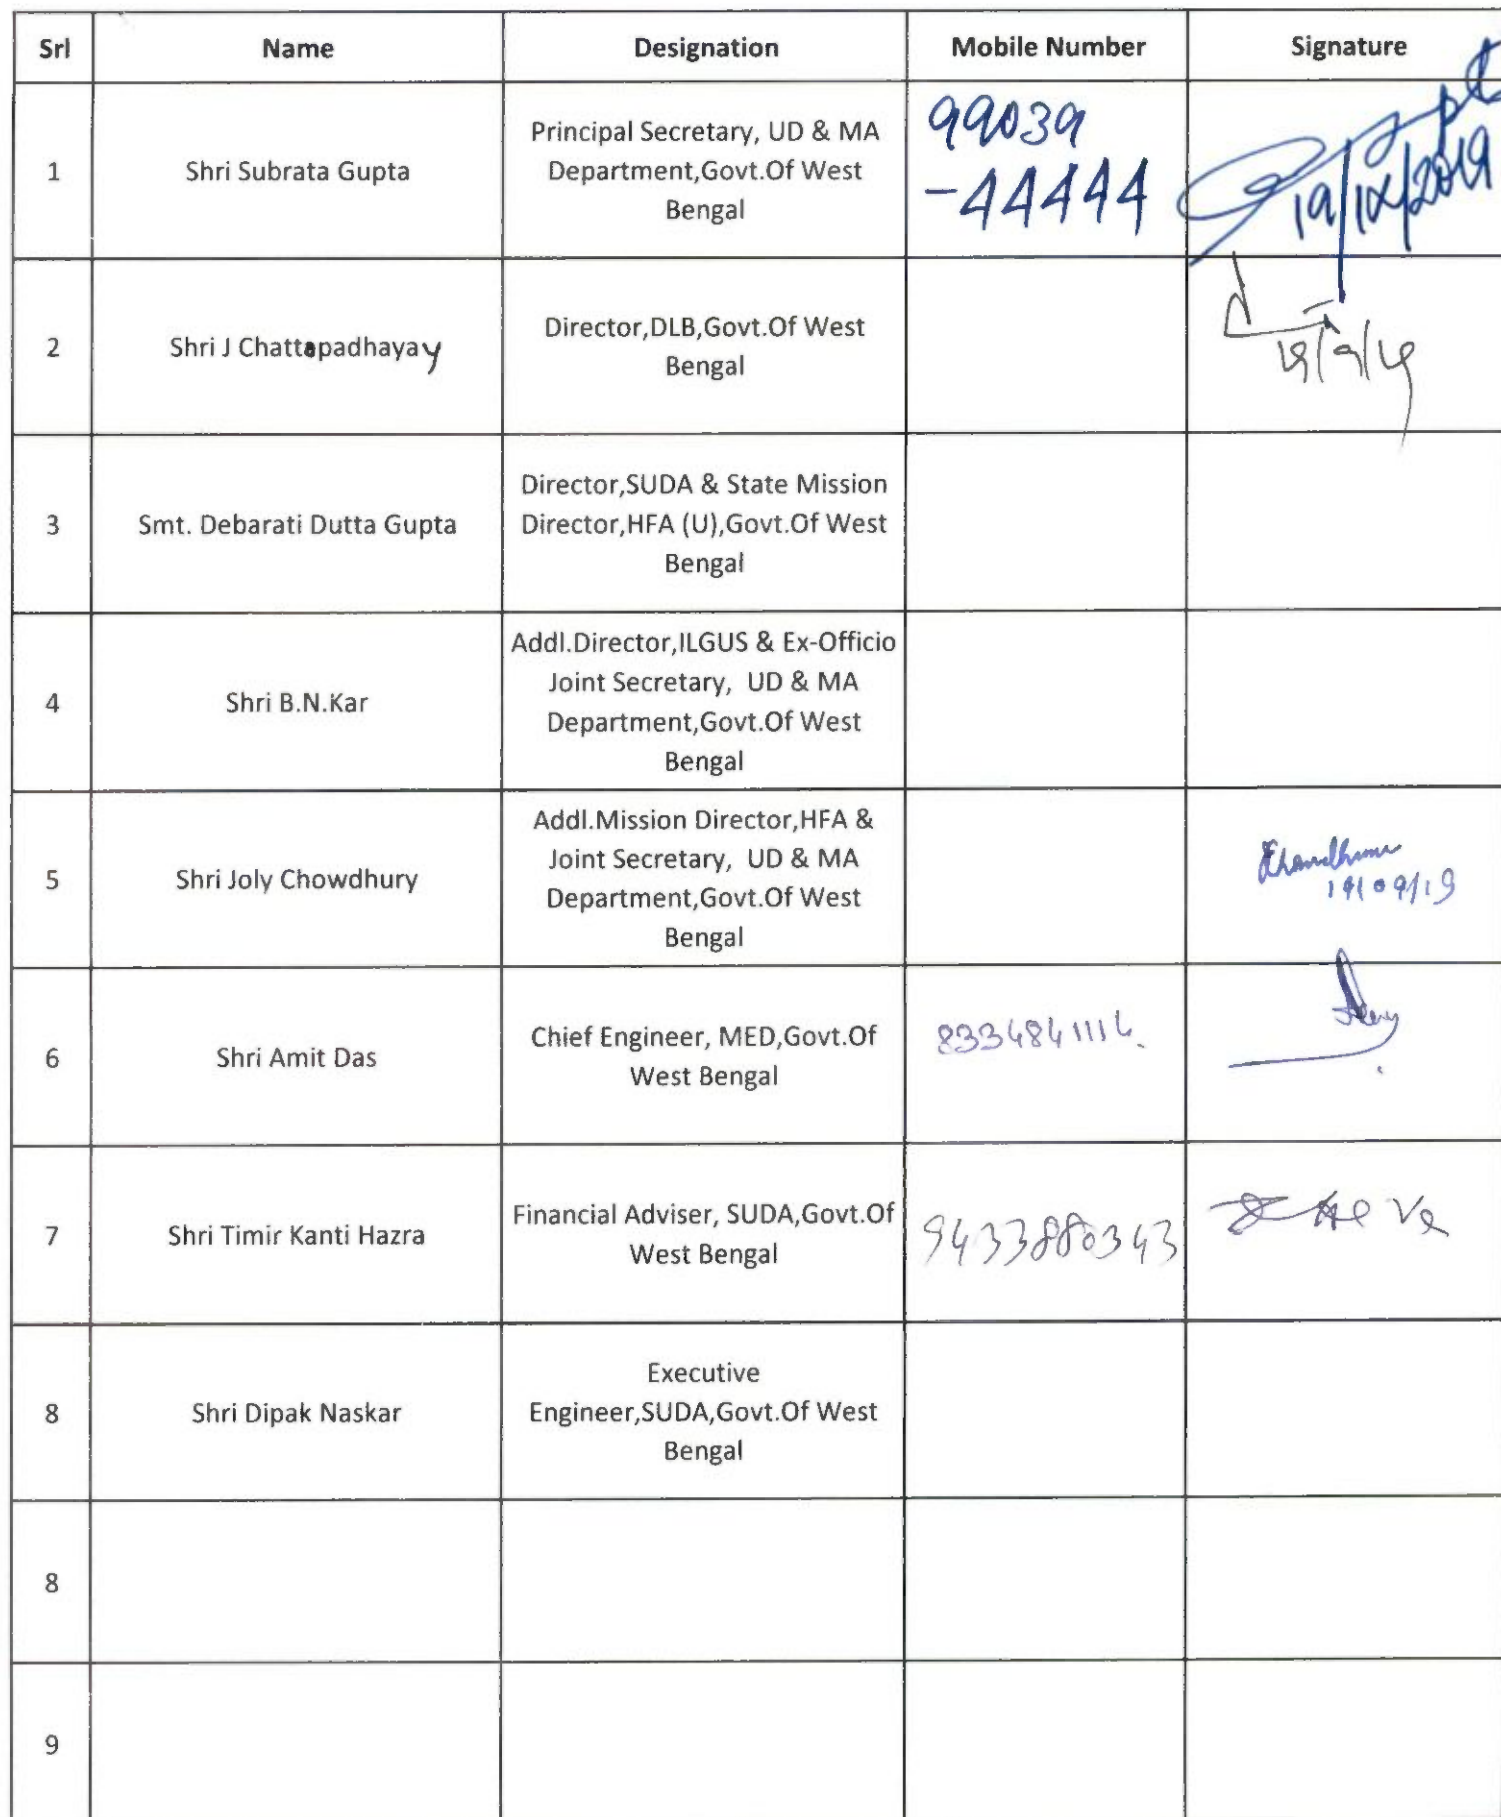 Srl Name Designation Mobile Number Signature
1 Shri Subrata Gupta Principal Secretary, UD & MA
Department,Govt.Of West
Bengal
99039
-44444
2 Shri J Chattapadhayay Director,DLB,Govt.Of West
Bengal
3 Smt. Debarati Dutta Gupta Director,SUDA & State Mission
Director,HFA (U),Govt.Of West
Bengal
4 Shri B.N.Kar Addl.Director,ILGUS & Ex-Officio
Joint Secretary, UD & MA
Department,Govt.Of West
Bengal
5 Shri Joly Chowdhury Addl.Mission Director,HFA &
Joint Secretary, UD & MA
Department,Govt.Of West
Bengal
19/09/19
6 Shri Amit Das Chief Engineer, MED,Govt.Of
West Bengal
7 Shri Timir Kanti Hazra Financial Adviser, SUDA,Govt.Of
West Bengal
9433880343
8 Shri Dipak Naskar Executive
Engineer,SUDA,Govt.Of West
Bengal
8
9